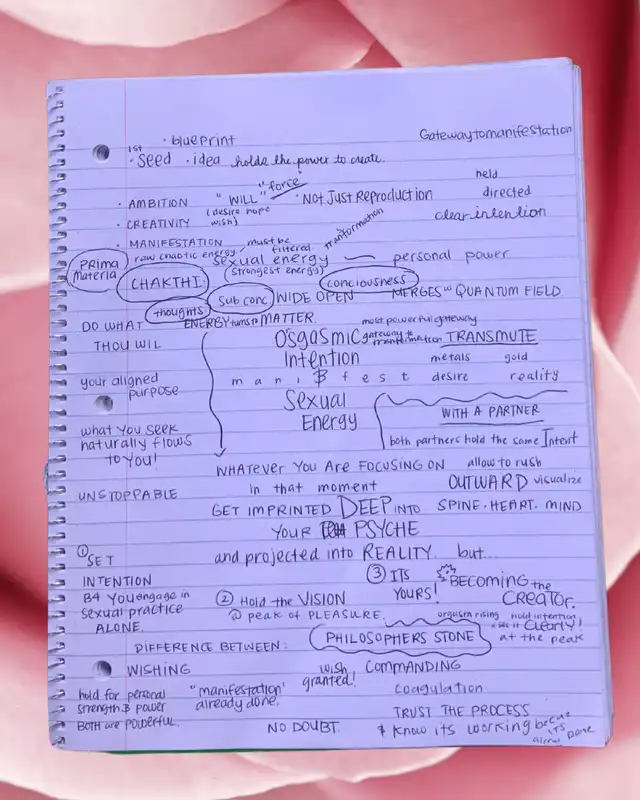 • blueprint
Gateway to manifestation
1st
• Seed • idea holds the power to create.
"force"
held
• AMBITION "WILL" • Not Just Reproduction directed
(desire hope
wish)
• CREATIVITY
clear intention
tranformation
• MANIFESTATION must be
filtered
raw chaotic energy sexual energy — personal power
(strongest energy)
PRIMA
Materia
CHAKTHI
conciousness
Sub conc WIDE OPEN MERGES w QUANTUM FIELD
thoughts
DO WHAT ENERGY turns to MATTER.
THOU WIL
most powerful gateway
O'sgasmic gateway to
tranformation TRANSMUTE
Intention metals gold
your aligned
purpose
manifest desire reality
Sexual
Energy
WITH A PARTNER
both partners hold the same Intent
what You SEEK
naturally flows
to You!
WHATEVER YOU ARE FOCUSING ON allow to rush
UNSTOPPABLE in that moment OUTWARD visualize
GET IMPRINTED DEEP INTO SPINE • HEART • MIND
YOUR PSYCHE
and projected into REALITY. but...
① SET
INTENTION
B4 You engage in
sexual practice
ALONE.
② Hold the VISION
@ peak of PLEASURE.
③ ITS
YOURS!
BECOMING the
CREATOR.
orgasm rising hold intention
& see it CLEARLY!
at the peak
PHILOSOPHERS STONE
DIFFERENCE BETWEEN:
WISHING wish
granted! COMMANDING
hold for personal
strength & power
BOTH are POWERFUL.
"manifestation'
already done.
coagulation
TRUST THE PROCESS
NO DOUBT. & know its working becuz
ITS
already Done